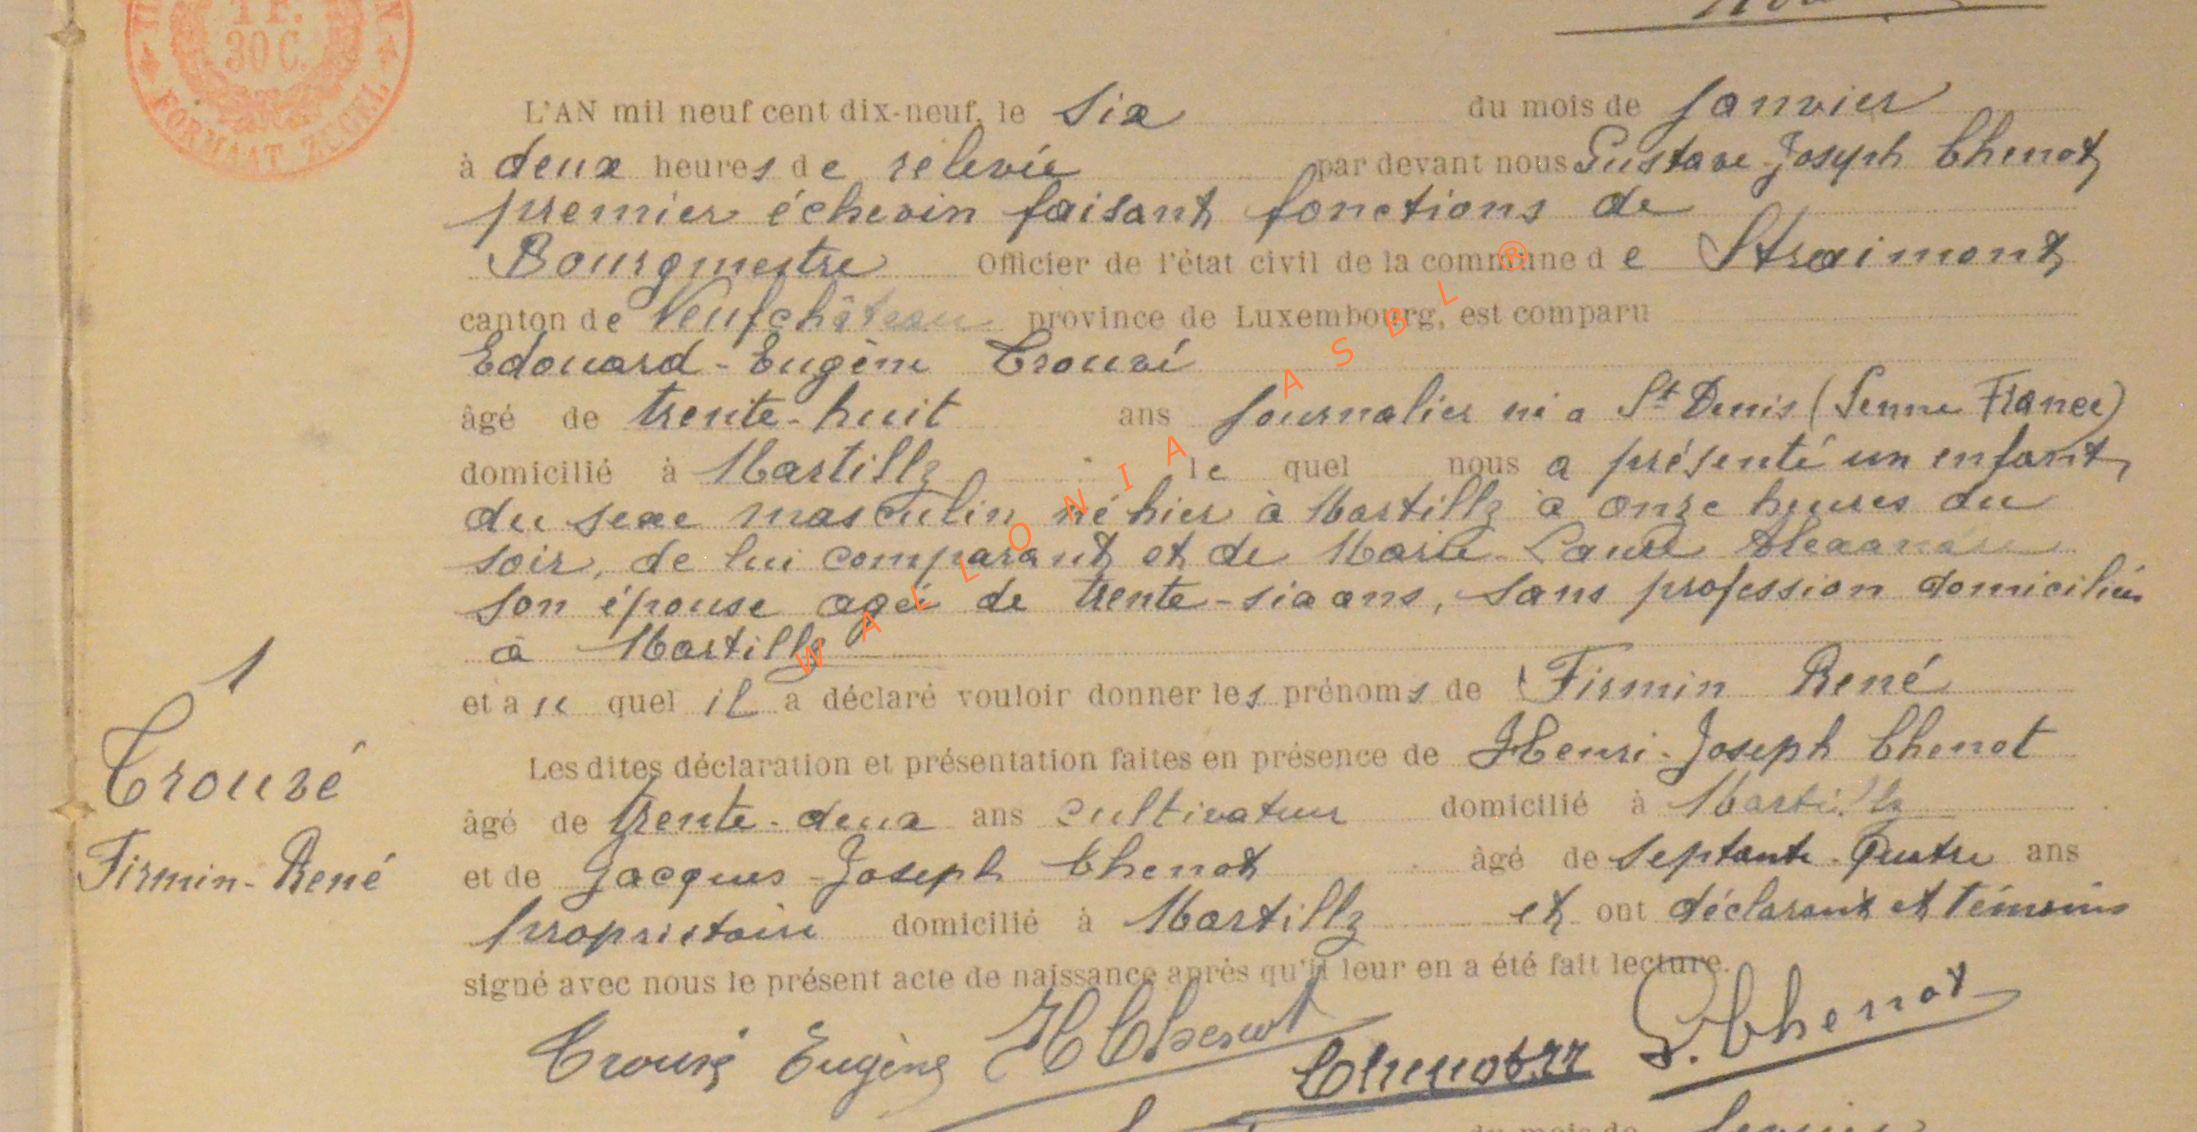 1 F.
30 C.
FORMAAT ZEGEL
L'AN mil neuf cent dix-neuf, le six du mois de Janvier
à deux heures de relevée par devant nous Gustave Joseph Chenot
premier échevin faisant fonctions de
Bourgmestre Officier de l'état civil de la commune de Straimont
canton de Neufchâteau province de Luxembourg, est comparu
Edouard-Eugène Trouvé
âgé de trente-huit ans Journalier né a St Denis (Senne France)
domicilié à Martilly le quel nous a présenté un enfant
du sexe masculin né hier à Martilly à onze heures du
soir, de lui comparant et de Marie Laure Alexandre
son épouse agée de trente-six ans, sans profession domiciliée
à Martilly
et au quel il a déclaré vouloir donner les prénoms de Firmin René
Les dites déclaration et présentation faites en présence de Henri-Joseph Chenot
âgé de trente-deux ans cultivateur domicilié à Martilly
et de Jacques-Joseph Chenot âgé de septante-quatre ans
propriétaire domicilié à Martilly et ont déclarant et témoins
signé avec nous le présent acte de naissance après qu'il leur en a été fait lecture.
1
Trouvé
Firmin-René
Trouvé Eugène H Chenot Chenot JJ G. Chenot
du mois de Janvier
WALLONIA ASBL ®